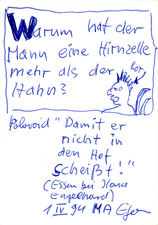 Warum hat der
Mann eine Hirnzelle
mehr als der
Hahn?
"Damit er
nicht in
den Hof
scheißt!"
(Essen bei Ilona
Engelhard)
1 IV 94 MA